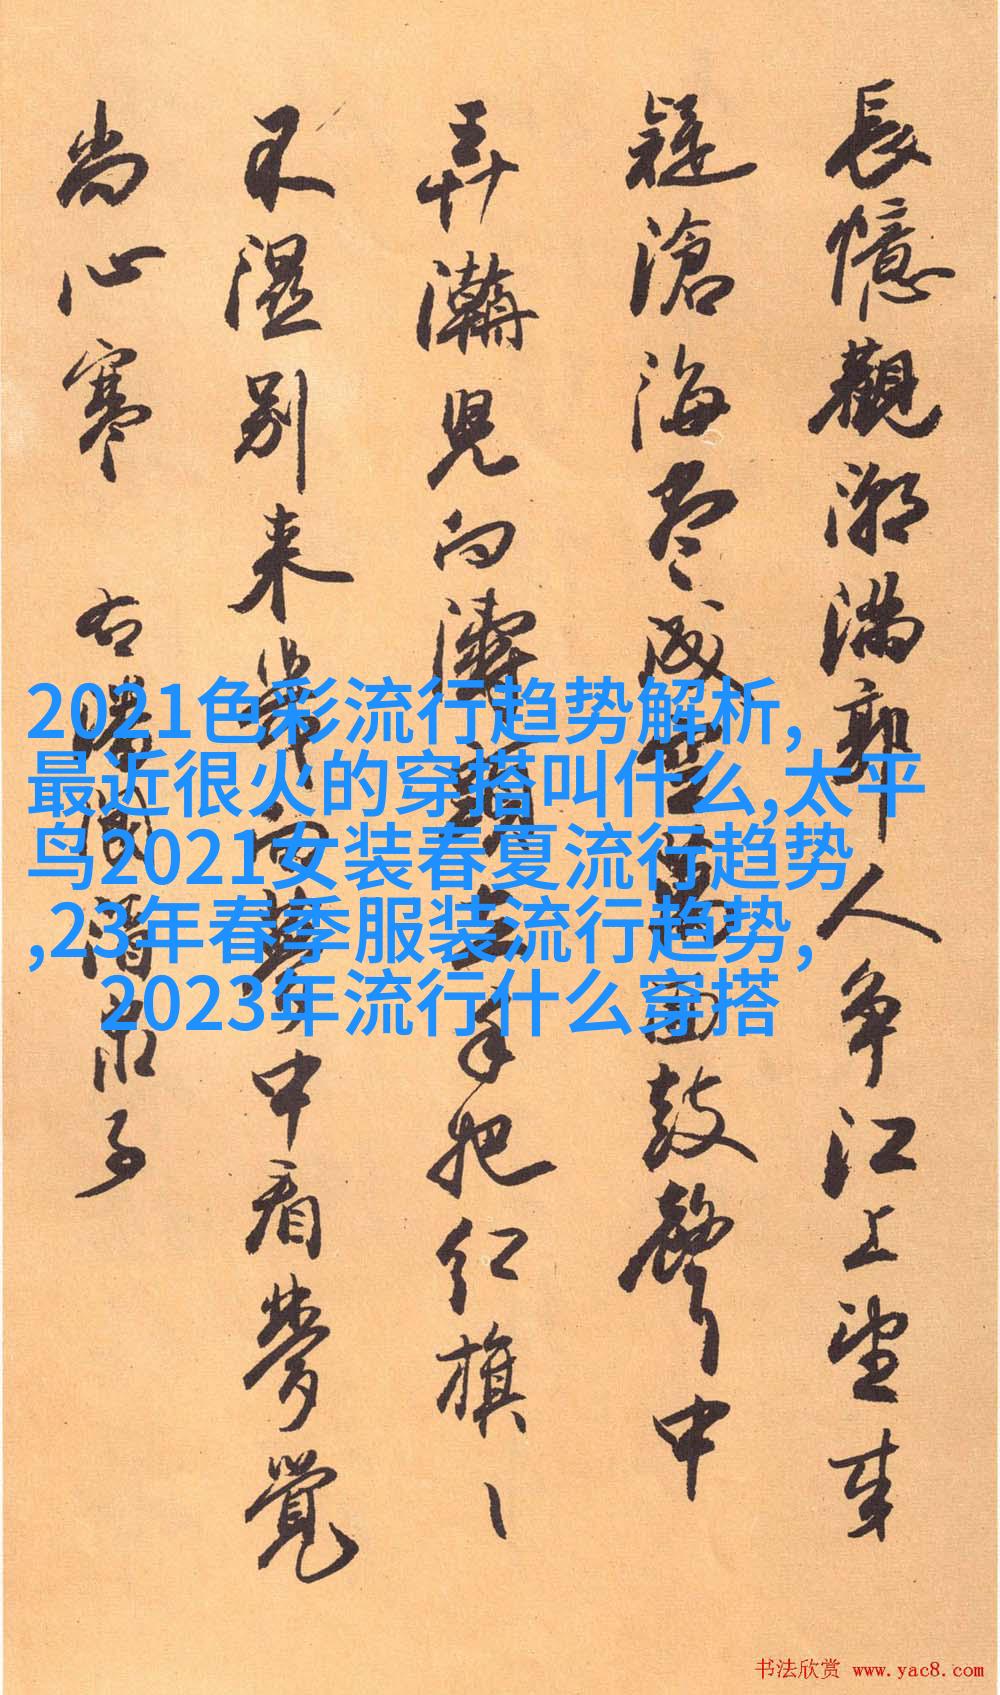 長憶觀潮满郭人争江上望来
疑滄海尽成空万面鼓聲中
弄濤児向濤頭立手把红旗丶
不湿别来幾向夢中看夢覺
尚心寒 右潘閬酒泉子
2021色彩流行趋势解析,
最近很火的穿搭叫什么,太平
鸟2021女装春夏流行趋势
,23年春季服装流行趋势,
2023年流行什么穿搭
书法欣赏 www.yac8.com